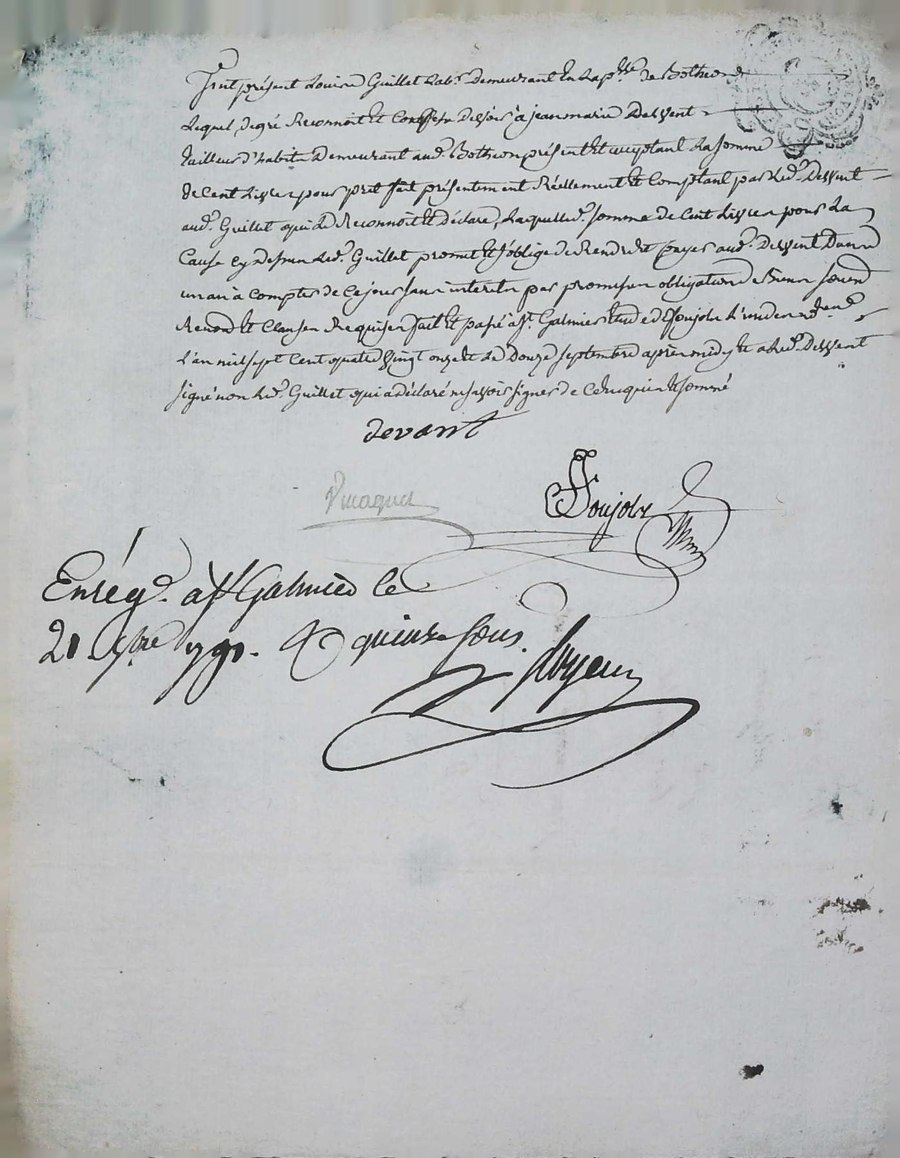 Fut présent Louis Guillet Lab.r Demeurant En La p.sse de Botheon
Lequel de gré Reconnoit Et Confesse Devoir à jean marie Devent
tailleur d'habits Demeurant aud. Botheon présent Et acceptant La Somme
de Cent Livres pour pret fait présentement Réellement Et Comptant par Led. Devent
aud. Guillet qui Le Reconnoit Et Déclare, Laquelle d. Somme de Cent Livres pour La
Cause cy Dessus Led. Guillet promet Et s'oblige de Rendre Et payer aud. Devent Dans
un an à compter de Ce jour sans interets par promesse obligation de Biens Soumis
Renon.d Et Clauses Requises fait Et passé à S.t Galmier Etude de Soujols L'un des no.res
L'an mil sept Cent quatre Vingt onze Et Le Douze septembre après midy Et a Led. Devent
signé non Led. Guillet qui a déclaré ne savoir signer de Ce Enquis Et sommé
devant
Soujols
Enrég. à S.t Galmier le
21 7bre 1791. R quinze sous.